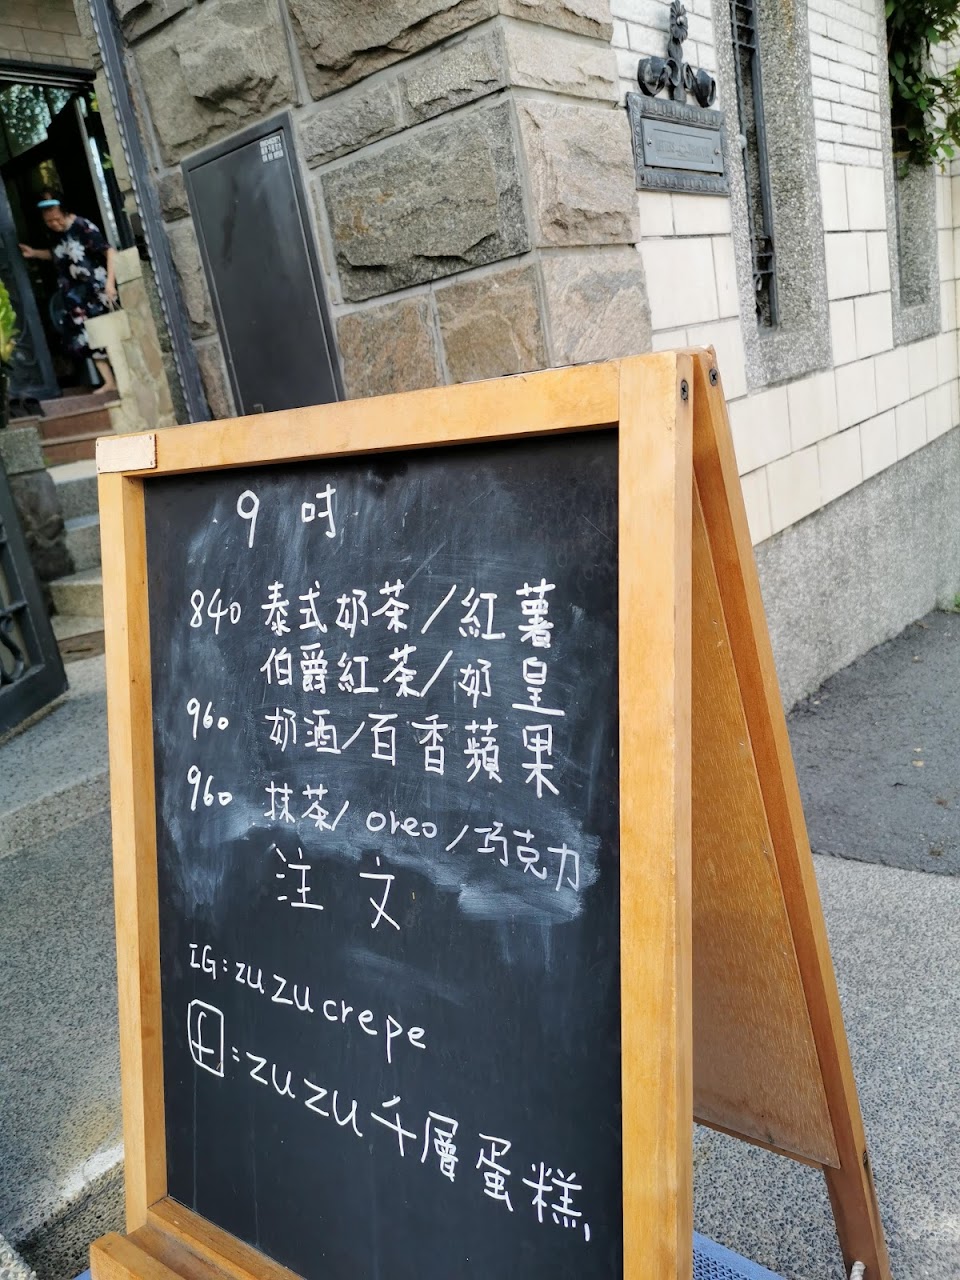 9 吋
840 泰式奶茶/紅薯
伯爵紅茶/奶皇
960 奶酒/百香蘋果
960 抹茶/oreo/巧克力
注文
IG:zuzucrepe
f:zuzu千層蛋糕